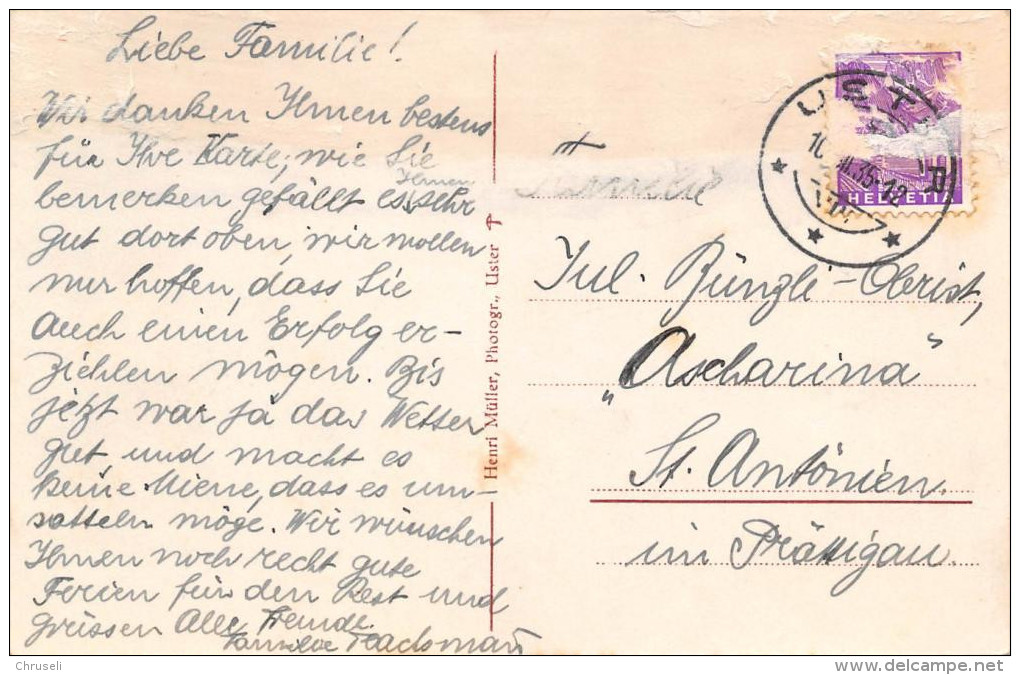 Liebe Familie!
Wir danken Ihnen bestens
für Ihre Karte, wie Sie
Ihnen
bemerken gefällt es sehr
gut dort oben, wir wollen
nur hoffen, dass Sie
auch einen Erfolg er-
ziehlen mögen. Bis
jetzt war ja das Wetter
gut, und macht es
keine Miene, dass es um-
satteln möge. Wir wünschen
Ihnen noch recht gute
Ferien für den Rest und
grüssen Alle Freunde.
Familie
Henri Müller, Photogr., Uster
Familie
Jul. Bünzli-Oberist,
„Ascharina"
St. Antönien.
im Prättigau.
USTER
35-12
HELVETIA
Chruseli
delcampe.net